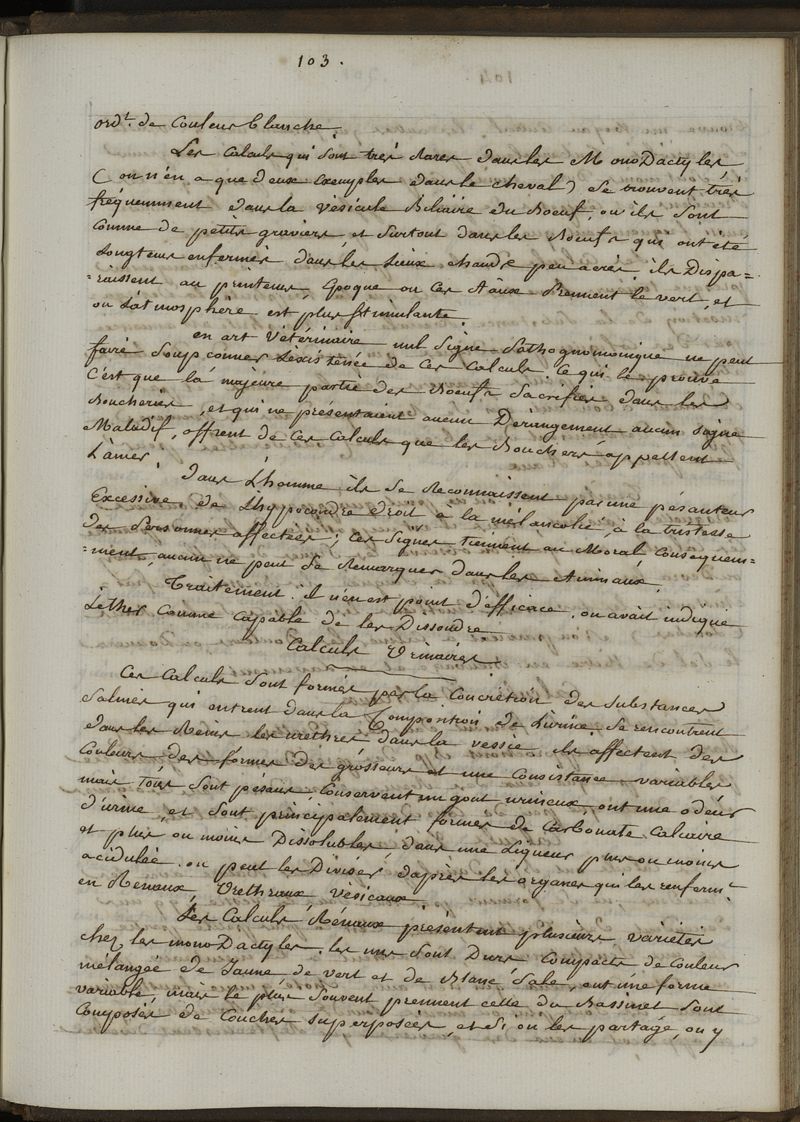 103.
ord.t de Couleur blanche.
Les Calculs qui sont très Rares dans les MonoDactyles
( on n'én a que deux exemples dans le cheval ) se trouvent très
fréquemment dans la vésicule Biliaire du Boeuf, ou ils sont
Comme de petits graviers, et surtout dans les Boeufs qui ont été
Longtems enfermés dans les Lieux chauds peu aerés, ils Dispa=
=raissent au printems, époque ou Ces Aãux Prennent le vert, et
ou L'atmosphère est plus Stimulante.
en art Vétérinaire nul Signe Pathognomonique ne peut
faire Soupconner Léxistence de Ces Calculs. Ce qui le prouve
C'est que la majeure partie des Boeufs Sacrifiés dans les
Boucheries, et qui ne présentaient aucun Dérangement aucun signe
Maladif, offrent de Ces Calculs que les Bouchers appellent
L'amer.
Dans L'homme ils se Reconnaissent par une pésanteur
Excessive de L'hypocondre droit à la mélancolie, à la tristesse
Des Personnes affectées; Ces Signes tiennent au Moral Consequem=
=ment, aucun ne peut se Remarquer dans les Animaux.
Traitement: il n'en est point d'efficace, on avait indiqué
L'ether Comme Capable de les Dissoudre
Calculs Urinaires.
Ces Calculs Sont formés par la Concrétion des Substances
Salines qui entrent dans la Composition de L'urine, Se rencontrent
dans les Reins les urethres dans la vessie. ils affectent des
Couleurs des formes des grosseurs et une Consistance variables
mais tous sont pésans, Conservent un gout urineux, ont une odeur
d'urine, et Sont principalement formés de Carbonate Calcaire
et plus ou moins Dissolubles dans une Liqueur plus ou moins
acidulée. on peut les Diviser daprès les organes qui les renferm.t
en Renaux Urethraux vésicaux.
Les Calculs Rénaux présentent plusieurs variétés
chez les monoDactyles. les uns Sont Durs Compacts de Couleur
mélangée de Jaune, de vert et de Blanc Sale, ont une forme
variable, mais le plus Souvent prennent celle du Bassinet Sont
Composés de Couches superposées, et Si on les partage, on y